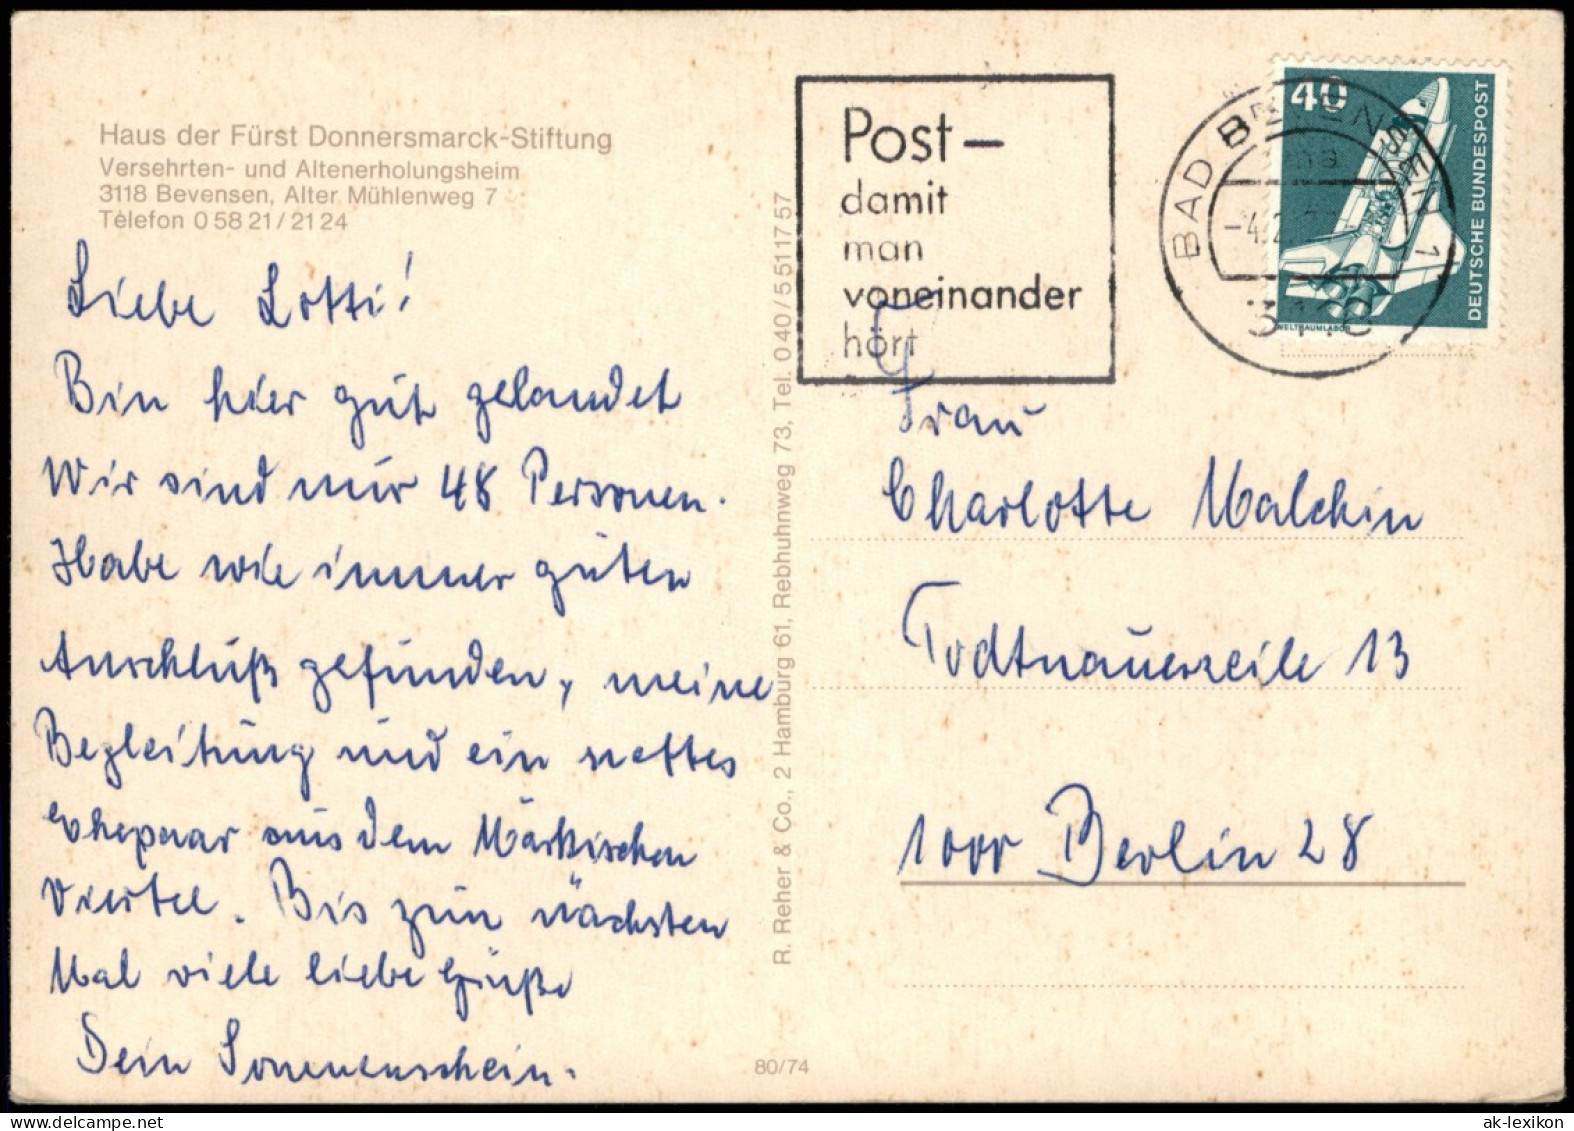 Haus der Fürst Donnersmarck-Stiftung
Versehrten- und Altenerholungsheim
3118 Bevensen, Alter Mühlenweg 7
Telefon 0 58 21 / 21 24
Liebe Lotti!
Bin hier gut gelandet
Wir sind nur 48 Personen.
Habe wie immer guten
Anschluß gefunden, meine
Begleitung und ein nettes
Ehepaar aus dem Märkischen
Viertel. Bis zum nächsten
Mal viele liebe Grüße
Dein Sonnenschein.
R. Reher & Co., 2 Hamburg 61, Rebhuhnweg 73, Tel. 040/5 51 17 57
80/74
Post –
damit
man
voneinander
hört
BAD BEVENSEN 1
3118
40
DEUTSCHE BUNDESPOST
WELTRAUMLABOR
Frau
Charlotte Malchin
Todtnauerzeile 13
1000 Berlin 28
ak-lexikon